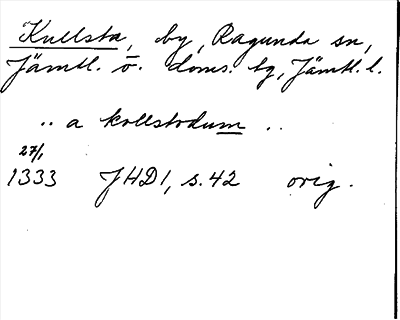 Kullsta, by, Ragunda sn,
Jämtl. ö. doms. tg, Jämtl. l.
.. a kollstodum ..
27/1
1333 JHD 1, s. 42 orig.